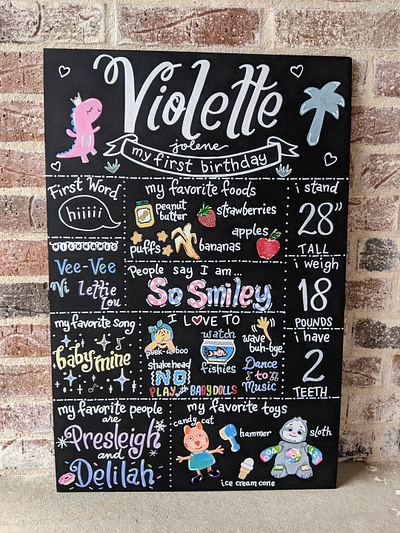 Violette
jolene
my first birthday
First Word
hiiiii
NICKNAMES
Vee-Vee
Vi Lettie
Lou
my favorite song
baby mine
my favorite people
are
Presleigh
and
Delilah
my favorite foods
peanut
butter
strawberries
apples
puffs
bananas
People say I am...
So Smiley
I LOVE TO
peek-a-boo
watch
fishies
wave
buh-bye
shake head
NO
Dance
to
Music
PLAY with BABY DOLLS
my favorite toys
candy cat
hammer
sloth
ice cream cone
i stand
28"
TALL
i weigh
18
POUNDS
i have
2
TEETH